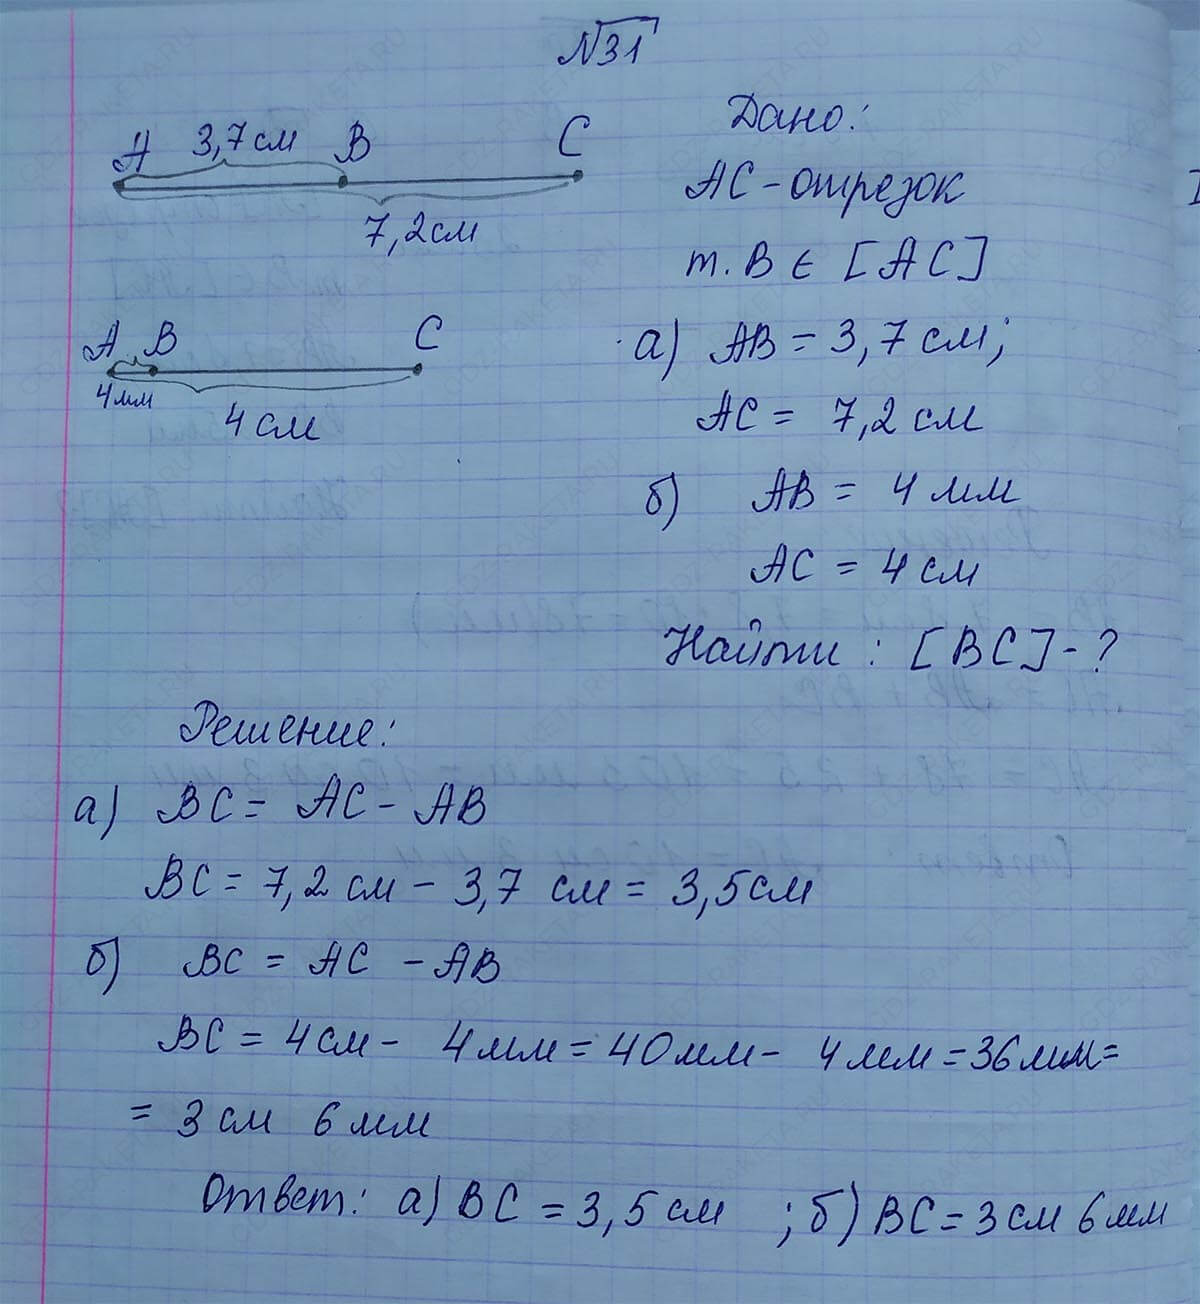 №31
A 3,7 см B C
7,2 см
A B C
4 мм
4 см
Дано:
AC - отрезок
т. B ∈ [AC]
а) AB = 3,7 см;
AC = 7,2 см
б) AB = 4 мм
AC = 4 см
Найти : [BC] - ?
Решение:
а) BC = AC - AB
BC = 7,2 см - 3,7 см = 3,5 см
б) BC = AC - AB
BC = 4 см - 4 мм = 40 мм - 4 мм = 36 мм =
= 3 см 6 мм
Ответ: а) BC = 3,5 см ; б) BC = 3 см 6 мм